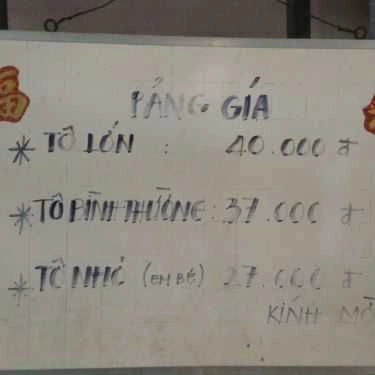 福
BẢNG GIÁ
* TÔ LỚN : 40.000 đ
* TÔ BÌNH THƯỜNG : 37.000 đ
* TÔ NHỎ (EM BÉ) 27.000 đ
KÍNH MỜI